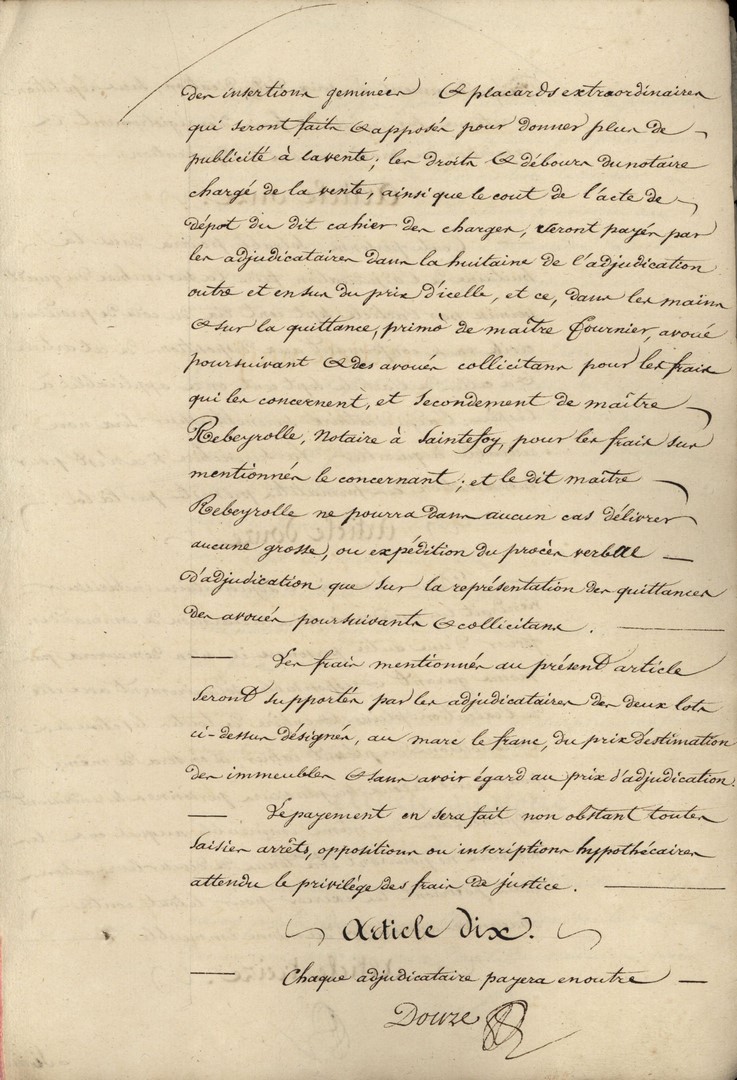 des insertions geminées & placards extraordinaires
qui seront faits & apposés pour donner plus de
publicité à la vente; les droits & débours du notaire
chargé de la vente, ainsi que le cout de l'acte de
dépot du dit cahier des charges, seront payés par
les adjudicataires dans la huitaine de l'adjudication
outre et en sus du prix d'icelle, et ce, dans les mains
& sur la quittance, primò de maître Fournier, avoué
poursuivant & des avoués collicitans pour les frais
qui les concernent, et secondement de maître
Rebeyrolle, Notaire à Saintefoy, pour les frais sus
mentionnés le concernant; et le dit maître
Rebeyrolle ne pourra dans aucun cas délivrer
aucune grosse, ou expédition du procès verbal
d'adjudication que sur la représentation des quittances
des avoués poursuivants & collicitans.
Les frais mentionnés au présent article
seront supportés par les adjudicataires des deux lots
ci-dessus désignés, au marc le franc, du prix d'estimation
des immeubles & sans avoir égard au prix d'adjudication.
Le payement en sera fait non obstant toutes
saisies arrêts, oppositions ou inscriptions hypothécaires
attendu le privilége des frais de justice.
Article dix.
Chaque adjudicataire payera en outre
Douze